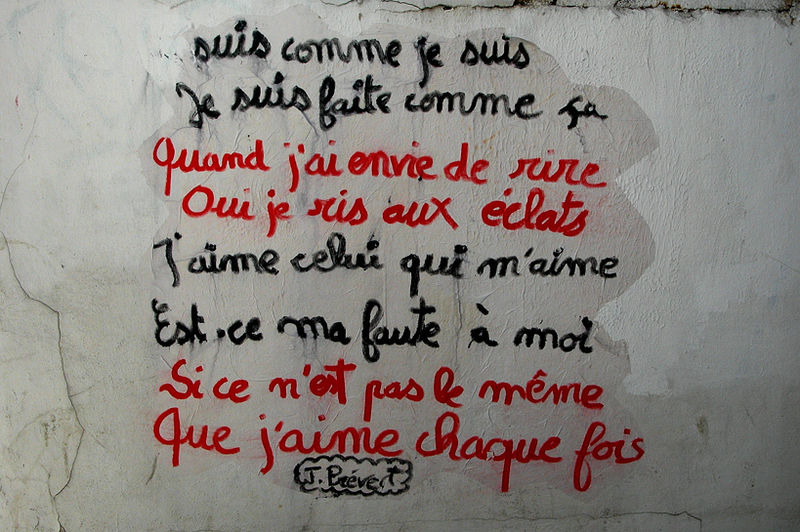 suis comme je suis
Je suis faite comme ça
Quand j'ai envie de rire
Oui je ris aux éclats
J'aime celui qui m'aime
Est-ce ma faute à moi
Si ce n'est pas le même
Que j'aime chaque fois
J. Prévert